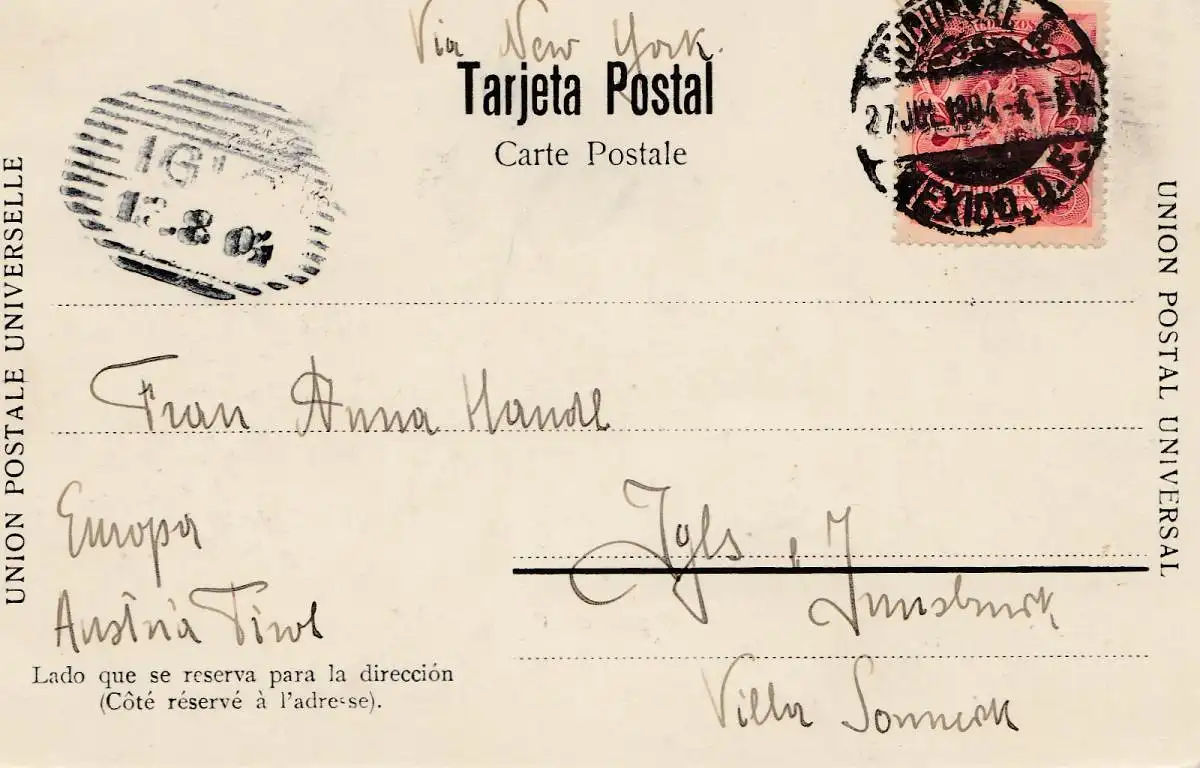 Via New York.
Tarjeta Postal
Carte Postale
27 JUL 1904
MEXICO, D.F.
IGLS
8 04
UNION POSTALE UNIVERSELLE
UNION POSTAL UNIVERSAL
Frau Anna Handl
Europa
Igls
Austria Tirol
Innsbruck
Lado que se reserva para la dirección
(Côté réservé à l'adresse).
Villa